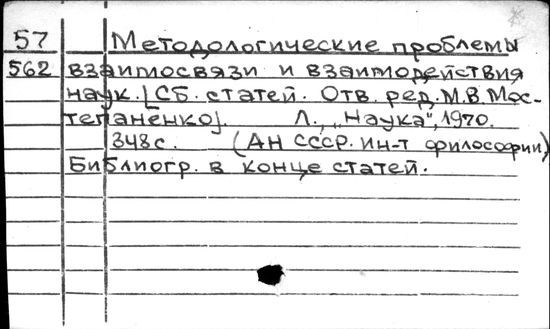 57 Методологические проблемы
562 взаимосвязи и взаимодействия
наук. [Сб. статей. Отв. ред. М.В. Мос-
тепаненко]. Л., „Наука", 1970.
348 с. (АН СССР. Ин-т философии)
Библиогр. в конце статей.